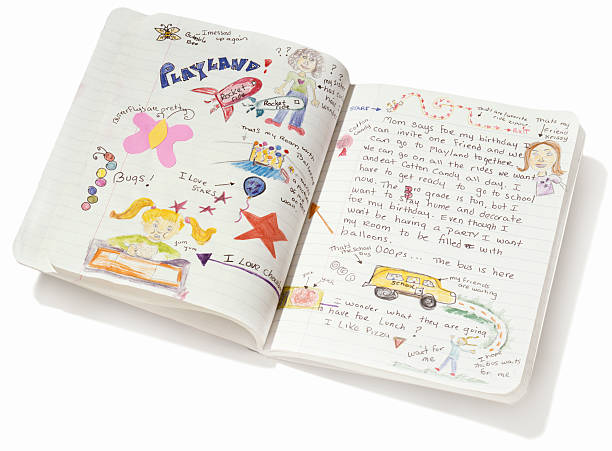 I messed
up again
Bumble
Bee
PLAYLAND!
? ?
? ?
my sister
has
Rocket
ride
Rocket
ride
Butterflys are pretty
Thats my Room with
Bugs!
I Love
STARS
yum
yum
I Love
START
EXIT
Thats my
friend
Krissy
Cotton
Candy
Mom says for my birthday I
can invite one friend and we
can go to Playland together.
we can go on all the rides we want
and eat Cotton Candy all day. I
have to get ready to go to school
now. The grade is fun, but I
want to stay home and decorate
for my birthday. Even though I
won't be having a party I want
my room to be filled with
balloons.
Thats the School
bus
Ooops... The bus is here
my friends
are waiting
SCHOOL
I wonder what they are going
to have for Lunch?
I Like Pizza
wait for
me
I hope
the bus waits
for me